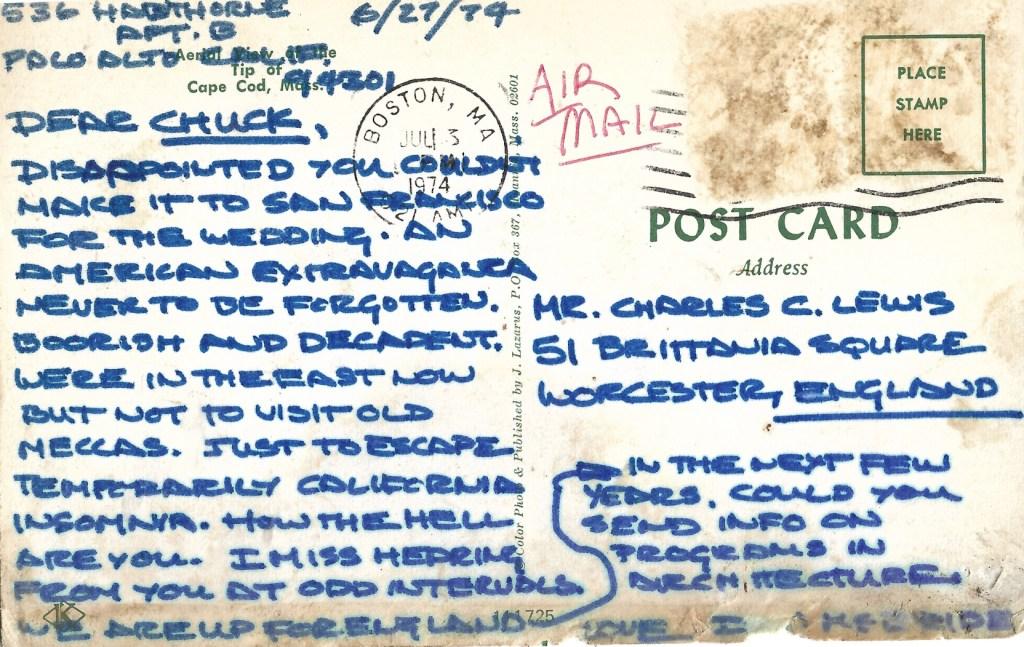 536 HAWTHORNE 6/27/74
APT. B
PALO ALTO CALIF.
94301
Aerial View of the
Tip of
Cape Cod, Mass.
DEAR CHUCK,
DISAPPOINTED YOU COULDN'T
MAKE IT TO SAN FRANCISCO
FOR THE WEDDING. AN
AMERICAN EXTRAVAGANZA
NEVER TO BE FORGOTTEN.
BOORISH AND DECADENT.
WERE IN THE EAST NOW
BUT NOT TO VISIT OLD
MECCAS. JUST TO ESCAPE
TEMPORARILY CALIFORNIA
INSOMNIA. HOW THE HELL
ARE YOU. I MISS HEARING
FROM YOU AT ODD INTERVALS.
WE ARE UP FOR ENGLAND
IN THE NEXT FEW
YEARS. COULD YOU
SEND INFO ON
PROGRAMS IN
ARCHITECTURE.
LOVE
K
111725
BOSTON, MA
JUL 3
1974
021
Color Photo & Published by J. Lazarus, P.O. Box 367, Mass. 02601
AIR
MAIL
PLACE
STAMP
HERE
POST CARD
Address
MR. CHARLES C. LEWIS
51 BRITTANIA SQUARE
WORCESTER, ENGLAND